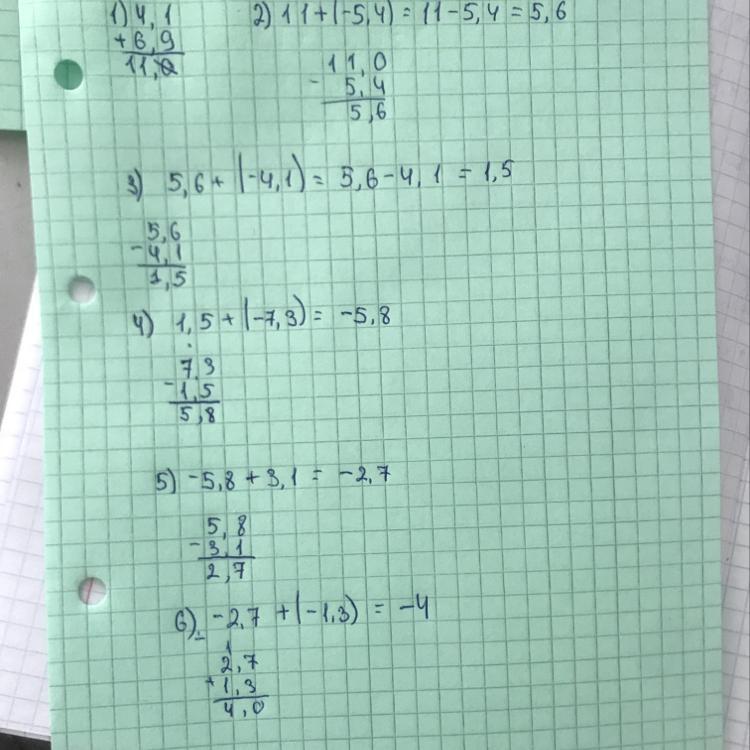 1) 4,1
+ 6,9
11,0
2) 11+(-5,4) = 11-5,4 = 5,6
11,0
- 5,4
5,6
3) 5,6+(-4,1) = 5,6-4,1 = 1,5
5,6
- 4,1
1,5
4) 1,5+(-7,3) = -5,8
7,3
- 1,5
5,8
5) -5,8+3,1 = -2,7
5,8
- 3,1
2,7
6) -2,7+(-1,3) = -4
1
2,7
+ 1,3
4,0